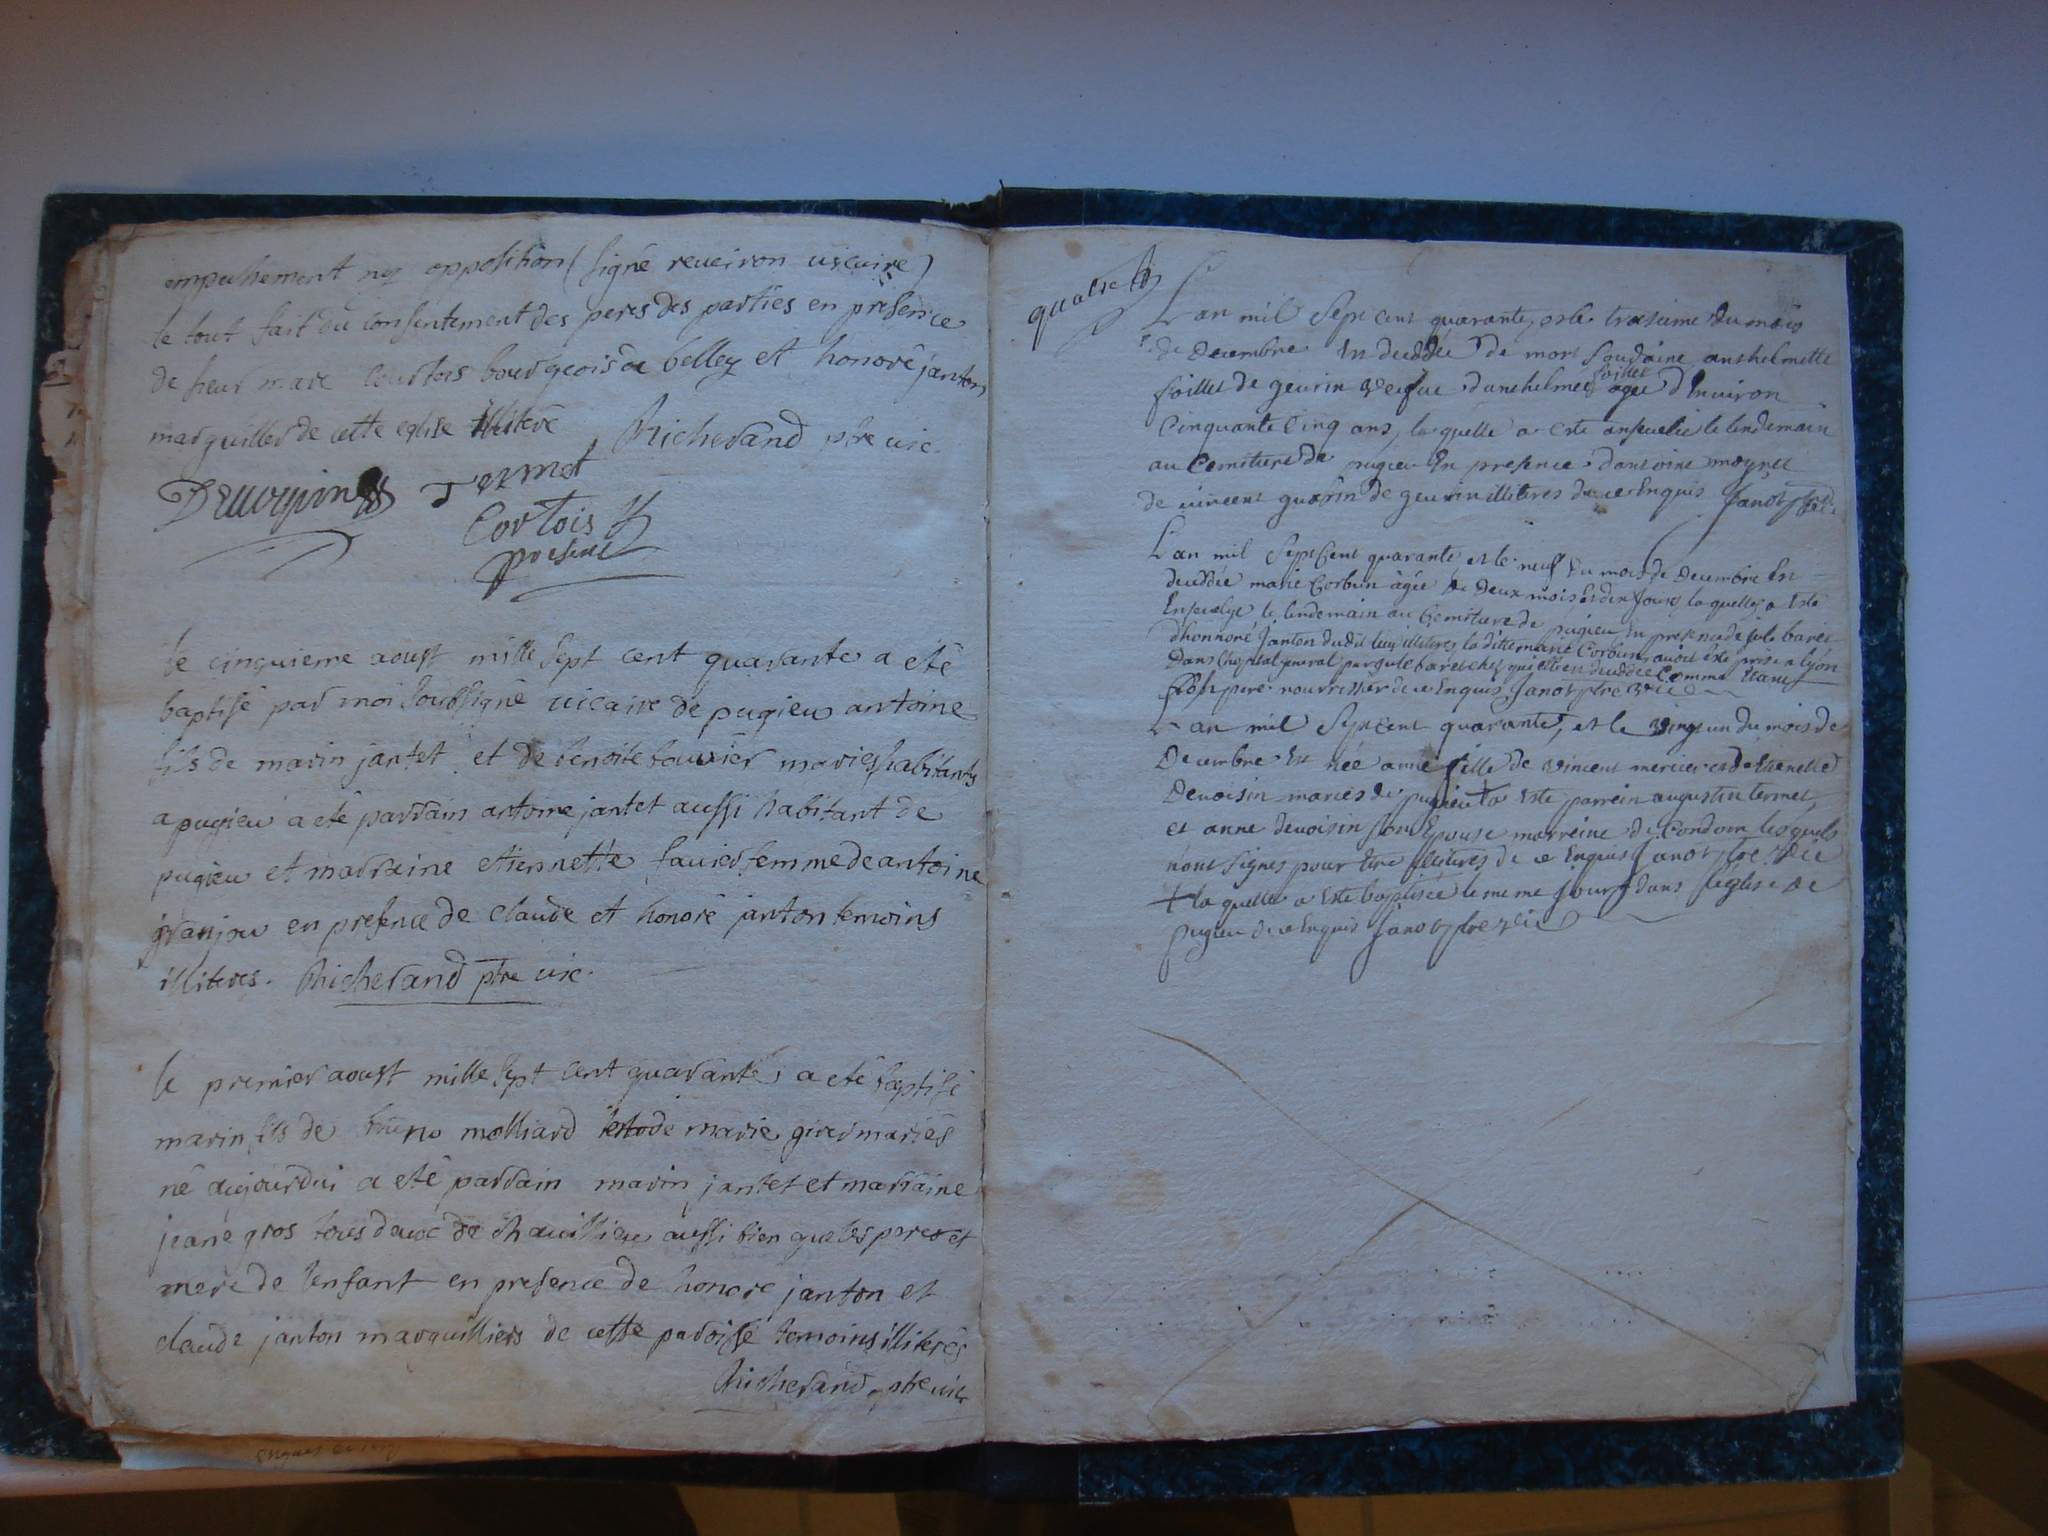 empechement ny opposition (signé reveiron vicaire)
le tout fait du consentement des peres des parties en presence
de sieur marc courtois bourgeois de belley et honoré janton
marguiller de cette eglise illiteré Richerand ptre vic.
Termet
Cortois
present
le cinquieme aoust mille sept cent quarante a eté
baptisé par moi soussigné vicaire de pugieu antoine
fils de marin jantet et de benoite bouvier mariés habitants
a pugieu a eté parrain antoine jantet aussi habitant de
pugieu et marraine etiennette femme de antoine
granjou en presence de claude et honoré janton temoins
illiteres. Richerand ptre vic.
le premier aoust mille sept cent quarante a eté baptisé
marin fils de molliard et de marie mariés
né aujourdui a eté parrain marin jantet et marraine
jeane gros tous deux de chavillieu aussi bien que les pere et
mere de lenfant en presence de honoré janton et
claude janton marguilliers de cette paroisse temoins illiterés
Richerand ptre vic
quatre
Lan mil sept cent quarante, et le troisieme du mois
de decembre est deceddée de mort soudaine anthelmette
foillet de geurin veufve danthelme foillet agée d'environ
cinquante cinq ans, laquelle a esté ansevelie le lendemain
au cemitiere de pugieu en presence dantoine moynet
de vincent guarin de geurin illiteres de ce enquis Janot ptre vic
Lan mil sept cent quarante et le neuf du mois de decembre est
deceddée marie Corbun agée de deux mois et dix jours laquelle a esté
ensevelye le lendemain au cemitiere de pugieu en presence de baret
dhonnoré janton dudit lieu illiteres la ditte marie Corbun avoit esté prise a lyon
dans lhopital general par baret chez qui est deceddée comme etant
son pere nourrissier de ce enquis Janot ptre vic
Lan mil sept cent quarante, et le vingt un du mois de
decembre est née anne fille de vincent mercier et destienette
devoisin mariés de pugieu + a esté parrein augustin termet,
et anne devoisin son epouse marreine de Condom lesquels
nont signés pour être illiteres de ce enquis Janot ptre vic
+ la quelle a esté baptisée le meme jour dans l'église de
pugieu de ce enquis Janot ptre vic